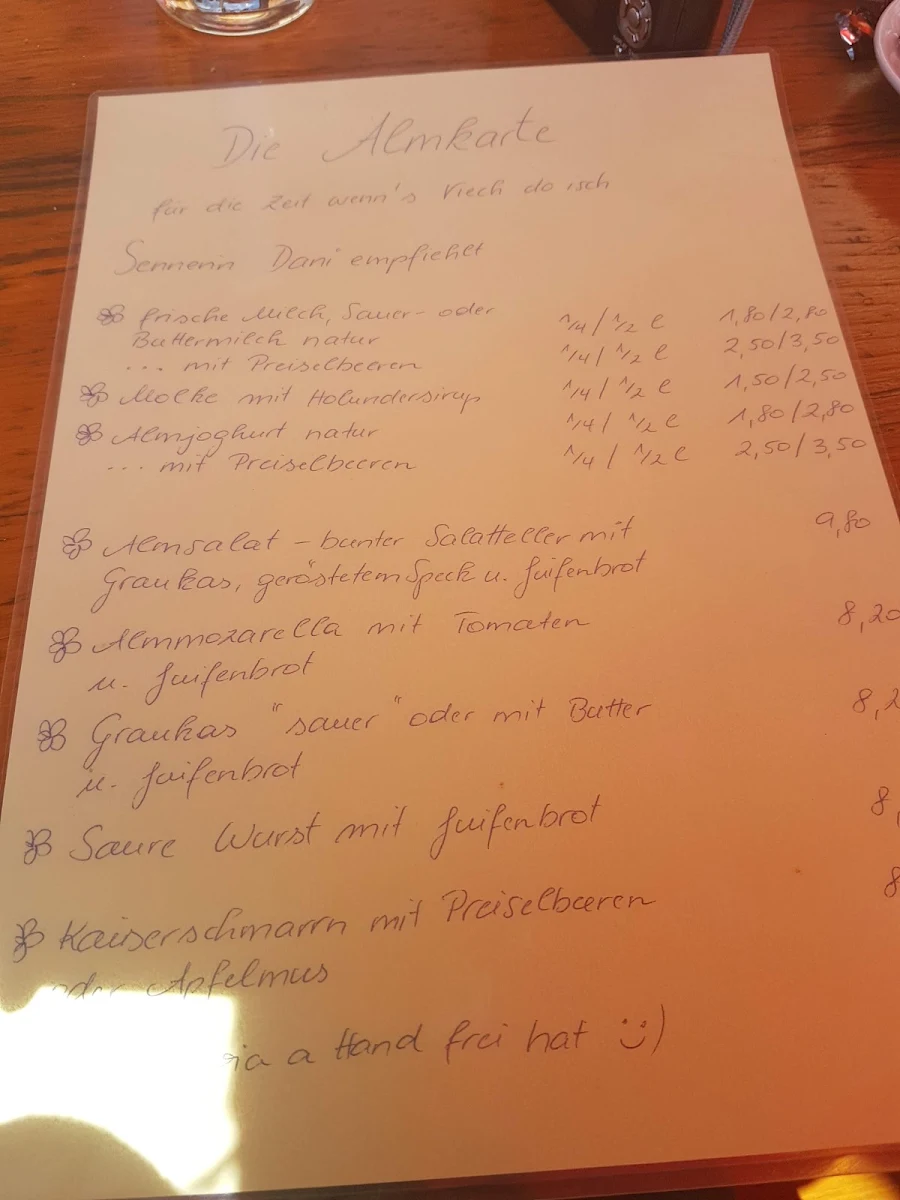 Die Almkarte
für die Zeit wenn's Viech do isch
Sennerin Dani empfiehlt
frische Milch, Sauer- oder 1/4 / 1/2 l 1,80/2,80
Buttermilch natur
... mit Preiselbeeren 1/4 / 1/2 l 2,50/3,50
Molke mit Holundersirup 1/4 / 1/2 l 1,50/2,50
Almjoghurt natur 1/4 / 1/2 l 1,80/2,80
... mit Preiselbeeren 1/4 / 1/2 l 2,50/3,50
Almsalat - bunter Salatteller mit 9,80
Graukas, geröstetem Speck u.
Almmozarella mit Tomaten 8,20
u.
Graukas "sauer" oder mit Butter 8,2
u.
Saure Wurst mit 8,
Kaiserschmarrn mit Preiselbeeren 8
oder Apfelmus
a Hand frei hat :)